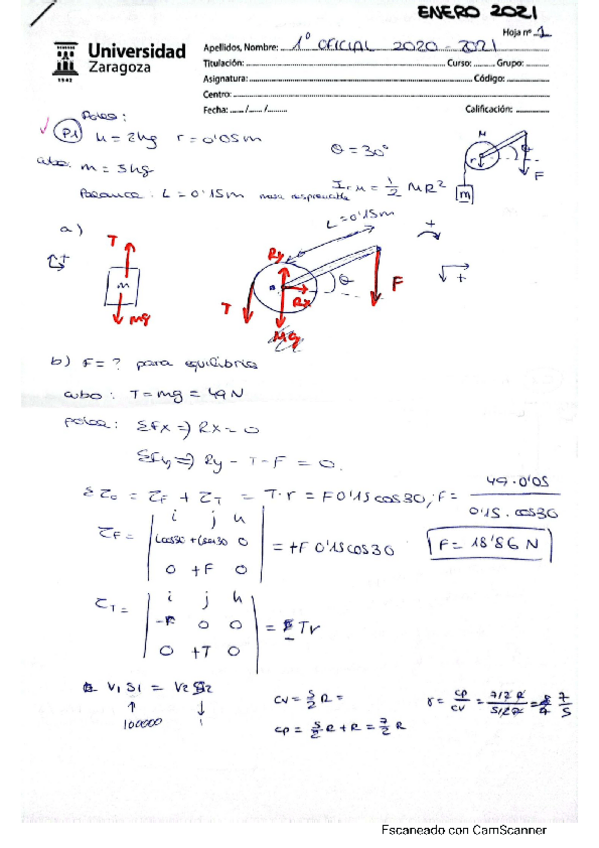 ENERO 2021
Hoja nº 1
Universidad
Zaragoza
1542
Apellidos, Nombre: 1º OFICIAL 2020 - 2021
Titulación: Curso: Grupo:
Asignatura: Código:
Centro:
Fecha: / / Calificación:
Polea:
P1 M = 2kg r = 0'05m θ = 30°
cubo: m = 5kg
Palanca: L = 0'15m masa despreciable I = 1/2 MR²
M
r
θ
F
m
a)
T
m
mg
L = 0'15m
Ry
Rx
θ
T
F
Mg
+
+
b) F = ? para equilibrio
cubo: T = mg = 49N
polea: ΣFx => Rx = 0
ΣFy => Ry - T - F = 0.
Στo = τF + τT = T·r = F 0'15 cos30; F = 49·0'05 / 0'15·cos30
τF = | i j k | = +F 0'15 cos30
0 +F 0
F = 18'86 N
τT = | i j k | = Tr
-r 0 0
0 +T 0
V1 S1 = V2 S2
100000 1
cv = 5/2 R =
cp = 5/2 R + R = 7/2 R
γ = cp/cv = 7/2 R / 5/2 R = 7/5
Escaneado con CamScanner